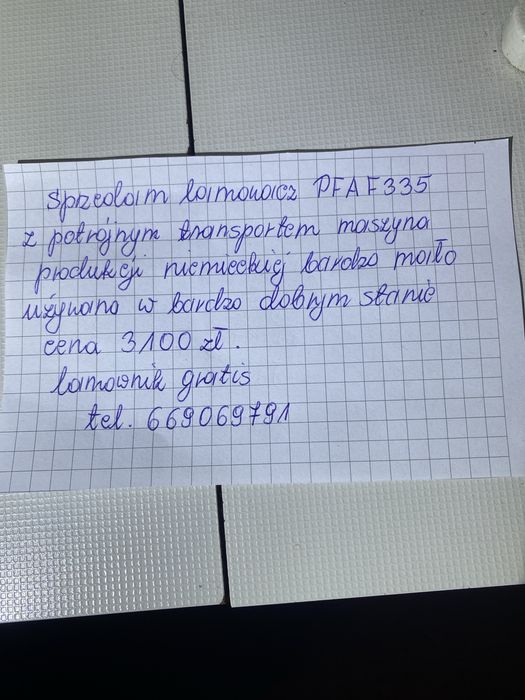 Sprzedam lamowacz PFAF335
z potrójnym transportem maszyna
produkcji niemieckiej bardzo mało
używana w bardzo dobrym stanie
cena 3100 zł.
lamownik gratis
tel. 669069791